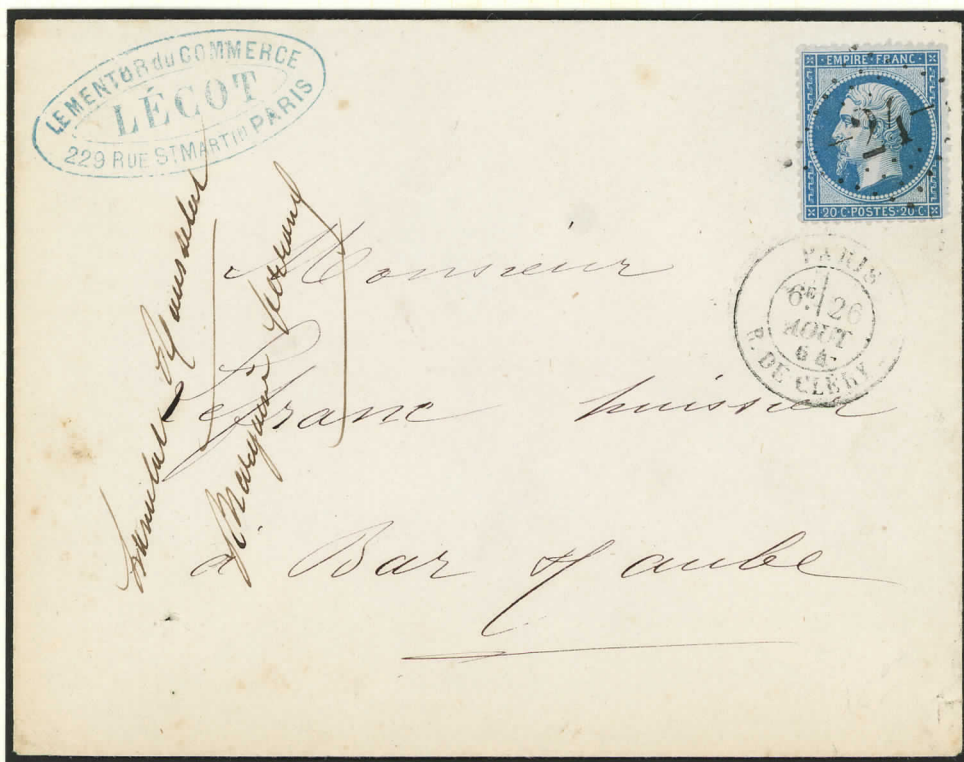 LE MENTOR du COMMERCE
LÉCOT
229 RUE ST MARTIN PARIS
EMPIRE · FRANC ·
24
20 C · POSTES · 20 C
PARIS
6E 26
AOUT
64
R. DE CLERY
Monsieur
Lefranc huissier
à Bar s/ aube